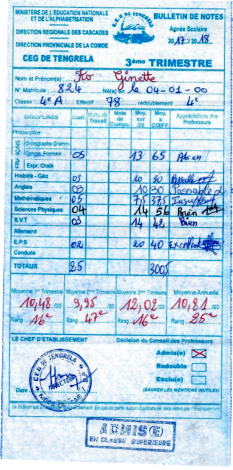 MINISTERE DE L'EDUCATION NATIONALE
ET DE L'ALPHABETISATION
DIRECTION REGIONALE DES CASCADES
DIRECTION PROVINCIALE DE LA COMOE
CEG DE TENGRELA
C.E.G DE TENGRELA
BULLETIN DE NOTES
Année Scolaire
2017 / 2018
3ème TRIMESTRE
Nom et Prénom(s) Ginette
N° Matricule : 824 Né(e) le 04-01-00
Classe 4e A Effectif 78 redoublement 4e
DISCIPLINES Coef. Note de Travail Note de Compo. Moy. sur /20 Moy. x COEFF Appréciations des Professeurs
Philosophie
Orthographe Gramm.
Compo. Française 05 13 65 Bien
Expr. Orale
Histoire - Géo 03 10 30
Anglais 03 10 30 Passable
Mathématiques 05 7,5 37,5 Insuffisant
Sciences Physiques 04 14 56 Bien
S.V.T 03 14 42 Bien
Allemand
E.P.S 02 20 40 Excellent
Conduite
TOTAUX 25 300,5
Moyenne 1er Trimestre Moyenne 2ème Trimestre Moyenne 3ème Trimestre Moyenne Annuelle
10,48 /20 9,95 /20 12,02 /20 10,81 /20
Rang 16e Rang 47e Rang 16e Rang 25e
LE CHEF D'ETABLISSEMENT
Décision du Conseil des Professeurs
Admis(e)
Redouble
Exclu(e)
(BARRER LES MENTIONS INUTILES)
C.E.G DE TENGRELA
Date
ADMIS(E)
EN CLASSE SUPERIEURE